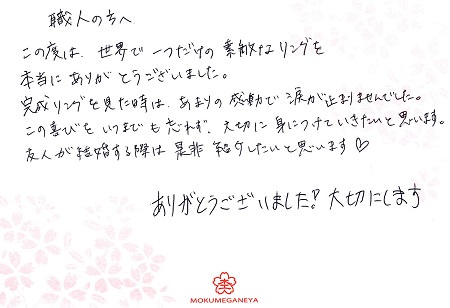 職人の方へ
この度は、世界で一つだけの素敵なリングを
本当にありがとうございました。
完成リングを見た時は、あまりの感動で涙が止まりませんでした。
この喜びをいつまでも忘れず、大切に身につけていきたいと思います。
友人が結婚する際は是非紹介したいと思います♡
ありがとうございました!大切にします
杢
MOKUMEGANEYA